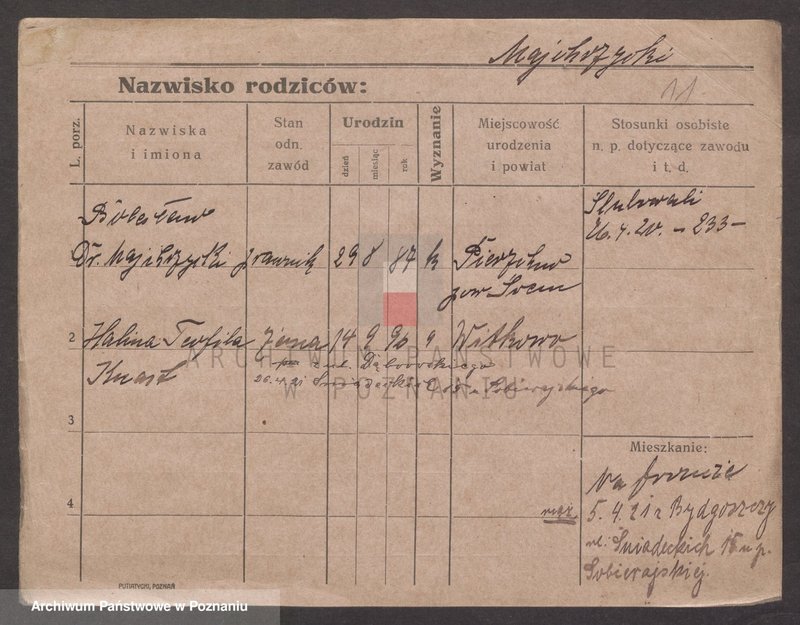 Majchrzycki
11
Nazwisko rodziców:
L. porz.
Nazwiska
i imiona
Stan
odn.
zawód
Urodzin
dzień
miesiąc
rok
Wyznanie
Miejscowość
urodzenia
i powiat
Stosunki osobiste
n. p. dotyczące zawodu
i t. d.
Bolesław
Dr. Majchrzycki prawnik 29 8 87 k
pow Śrem
Ślubowali
26.4.20. – 233 –
2 Halina Teofila żona 14 9 96 " Witkowo
Knast
z ul. Dąbrowskiego
26.4.21 Sobierajskiego
3
4
Mieszkanie:
Na froncie
mąż
5.4.21 z Bydgoszczy
ul. Śniadeckich 15 u p.
Sobierajskiej.
PUTIATYCKI, POZNAŃ
ARCHIWUM PAŃSTWOWE
W POZNANIU
Archiwum Państwowe w Poznaniu